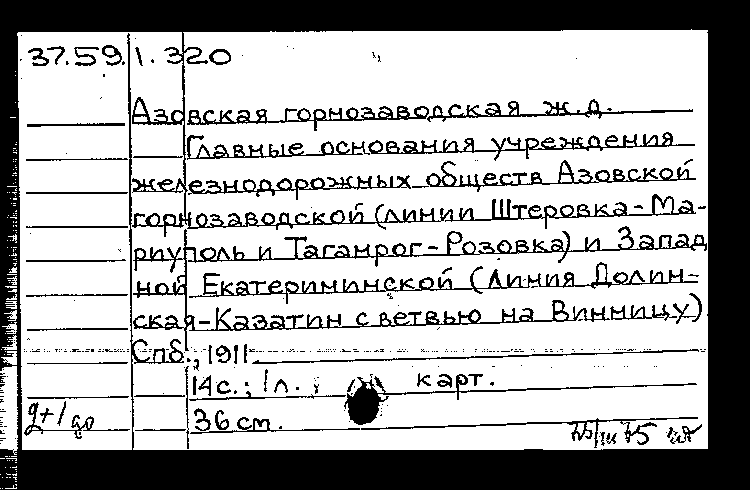 37.59.1.320
Азовская горнозаводская ж.д.
Главные основания учреждения
железнодорожных обществ Азовской
горнозаводской (линии Штеровка-Ма-
риуполь и Таганрог-Розовка) и Запад
ной Екатерининской (Линия Долин-
ская-Казатин с ветвью на Винницу)
Спб., 1911
14с.; 1л. карт.
36 см.
2+1